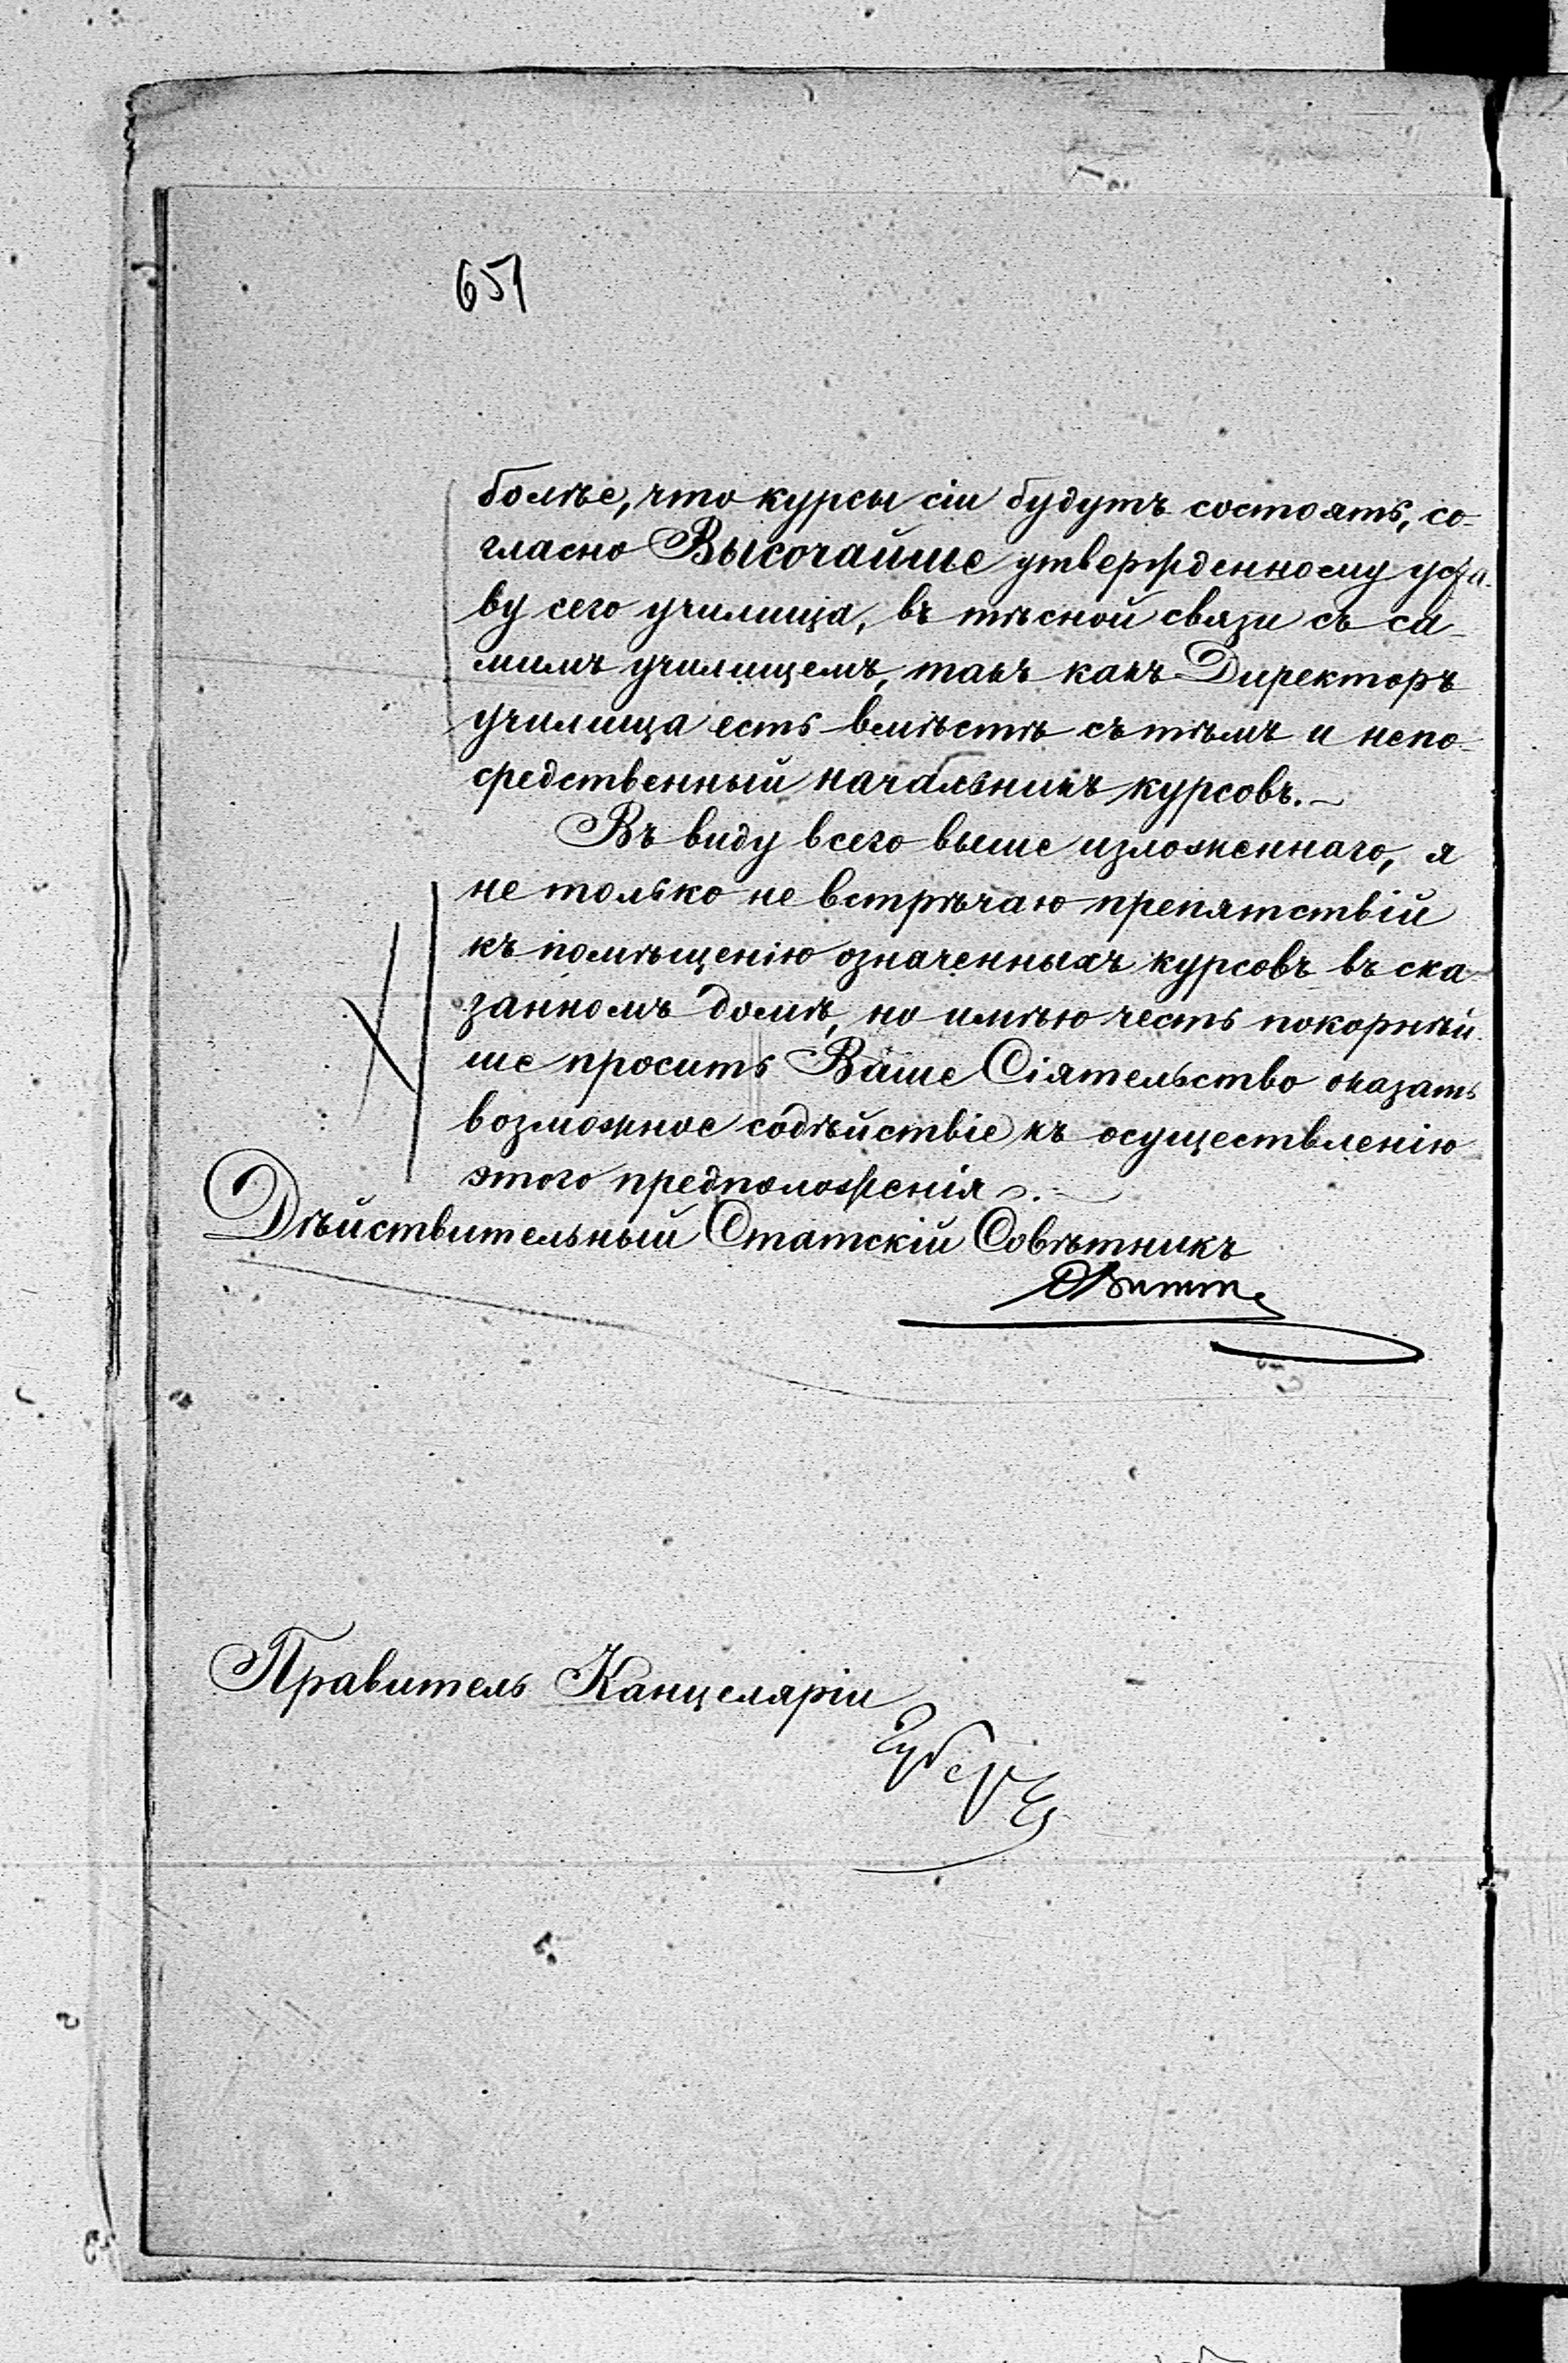 651
болѣе, что курсы сіи будутъ состоять, со-
гласно Высочайше утвержденному уста-
ву сего училища, въ тѣсной связи съ са-
мимъ училищемъ, такъ какъ Директоръ
училища есть вмѣстѣ съ тѣмъ и непо-
средственный начальникъ курсовъ.
Въ виду всего выше изложеннаго, я
не только не встрѣчаю препятствій
къ помѣщенію означенныхъ курсовъ въ ска-
занномъ домѣ, но имѣю честь покорнѣй-
ше просить Ваше Сіятельство оказать
возможное содѣйствіе къ осуществленію
этого предположенія.
Дѣйствительный Статскій Совѣтникъ
Витте
Правитель Канцеляріи